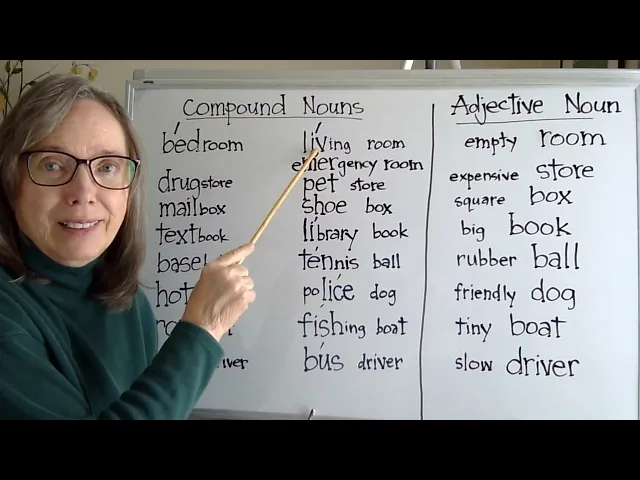 Compound Nouns
bédroom
drugstore
mailbox
textbook
líving room
emergency room
pet store
shoe box
líbrary book
ténnis ball
políce dog
físhing boat
bús driver
Adjective Noun
empty room
expensive store
square box
big book
rubber ball
friendly dog
tiny boat
slow driver